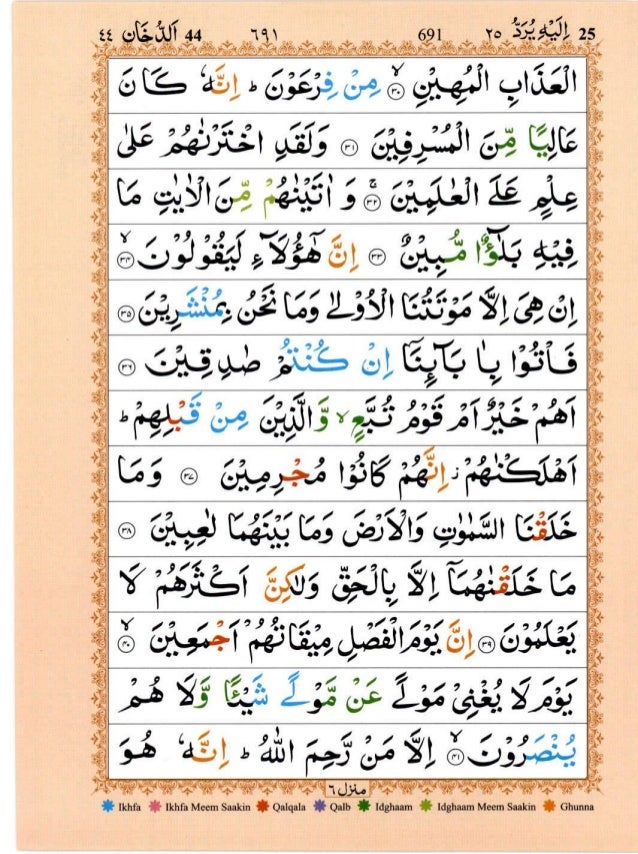 اَلدُّخَان ٤٤ 44 ٦٩١ 691 اِلَيْهِ يُرَدُّ ٢٥ 25
الْعَذَابِ الْمُهِيْنِ ۙ‏﴿۳۰﴾ مِنْ فِرْعَوْنَ ؕ اِنَّهٗ كَانَ
عَالِيًا مِّنَ الْمُسْرِفِيْنَ ﴿۳۱﴾ وَلَقَدِ اخْتَرْنٰهُمْ عَلٰى
عِلْمٍ عَلَى الْعٰلَمِيْنَ ۚ‏﴿۳۲﴾ وَ اٰتَيْنٰهُمْ مِّنَ الْاٰيٰتِ مَا
فِيْهِ بَلٰٓؤٌا مُّبِيْنٌ ﴿۳۳﴾ اِنَّ هٰٓؤُلَآءِ لَيَقُوْلُوْنَ ۙ‏﴿۳۴﴾
اِنْ هِىَ اِلَّا مَوْتَتُنَا الْاُوْلٰى وَمَا نَحْنُ بِمُنْشَرِيْنَ ﴿۳۵﴾
فَاْتُوْا بِاٰبَآئِنَاۤ اِنْ كُنْتُمْ صٰدِقِيْنَ ﴿۳۶﴾
اَهُمْ خَيْرٌ اَمْ قَوْمُ تُبَّعٍ ۙ وَّالَّذِيْنَ مِنْ قَبْلِهِمْ ؕ
اَهْلَكْنٰهُمْ ز اِنَّهُمْ كَانُوْا مُجْرِمِيْنَ ﴿۳۷﴾ وَمَا
خَلَقْنَا السَّمٰوٰتِ وَالْاَرْضَ وَمَا بَيْنَهُمَا لٰعِبِيْنَ ﴿۳۸﴾
مَا خَلَقْنٰهُمَاۤ اِلَّا بِالْحَقِّ وَلٰكِنَّ اَكْثَرَهُمْ لَا
يَعْلَمُوْنَ ﴿۳۹﴾ اِنَّ يَوْمَ الْفَصْلِ مِيْقَاتُهُمْ اَجْمَعِيْنَ ۙ‏﴿۴۰﴾
يَوْمَ لَا يُغْنِىْ مَوْلًى عَنْ مَّوْلًى شَيْـًٔا وَّلَا هُمْ
يُنْصَرُوْنَ ۙ‏﴿۴۱﴾ اِلَّا مَنْ رَّحِمَ اللّٰهُ ؕ اِنَّهٗ هُوَ
منزل ٦
Ikhfa Ikhfa Meem Saakin Qalqala Qalb Idghaam Idghaam Meem Saakin Ghunna